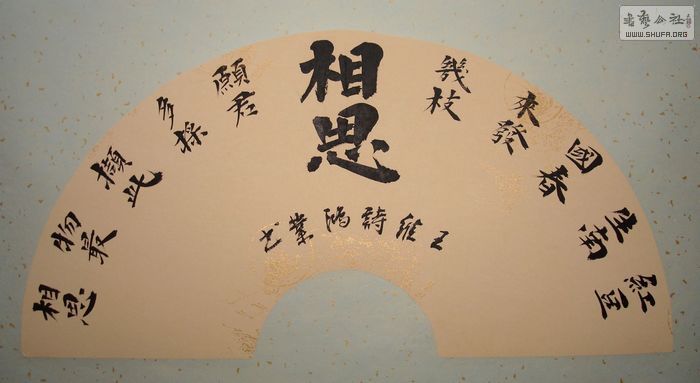 相思
紅豆
生南
國春
來發
幾枝
願君
多採
擷此
物最
相思
王維詩鴻業书
書藝公社
WWW.SHUFA.ORG